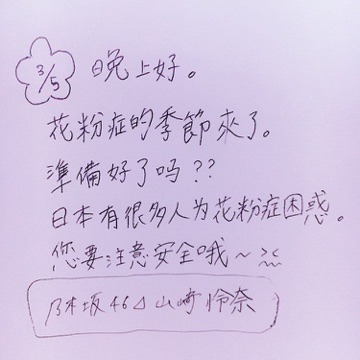 3/5 晚上好。
花粉症的季節來了。
準備好了吗??
日本有很多人为花粉症困惑。
您要注意安全哦～
乃木坂46⊿山崎怜奈